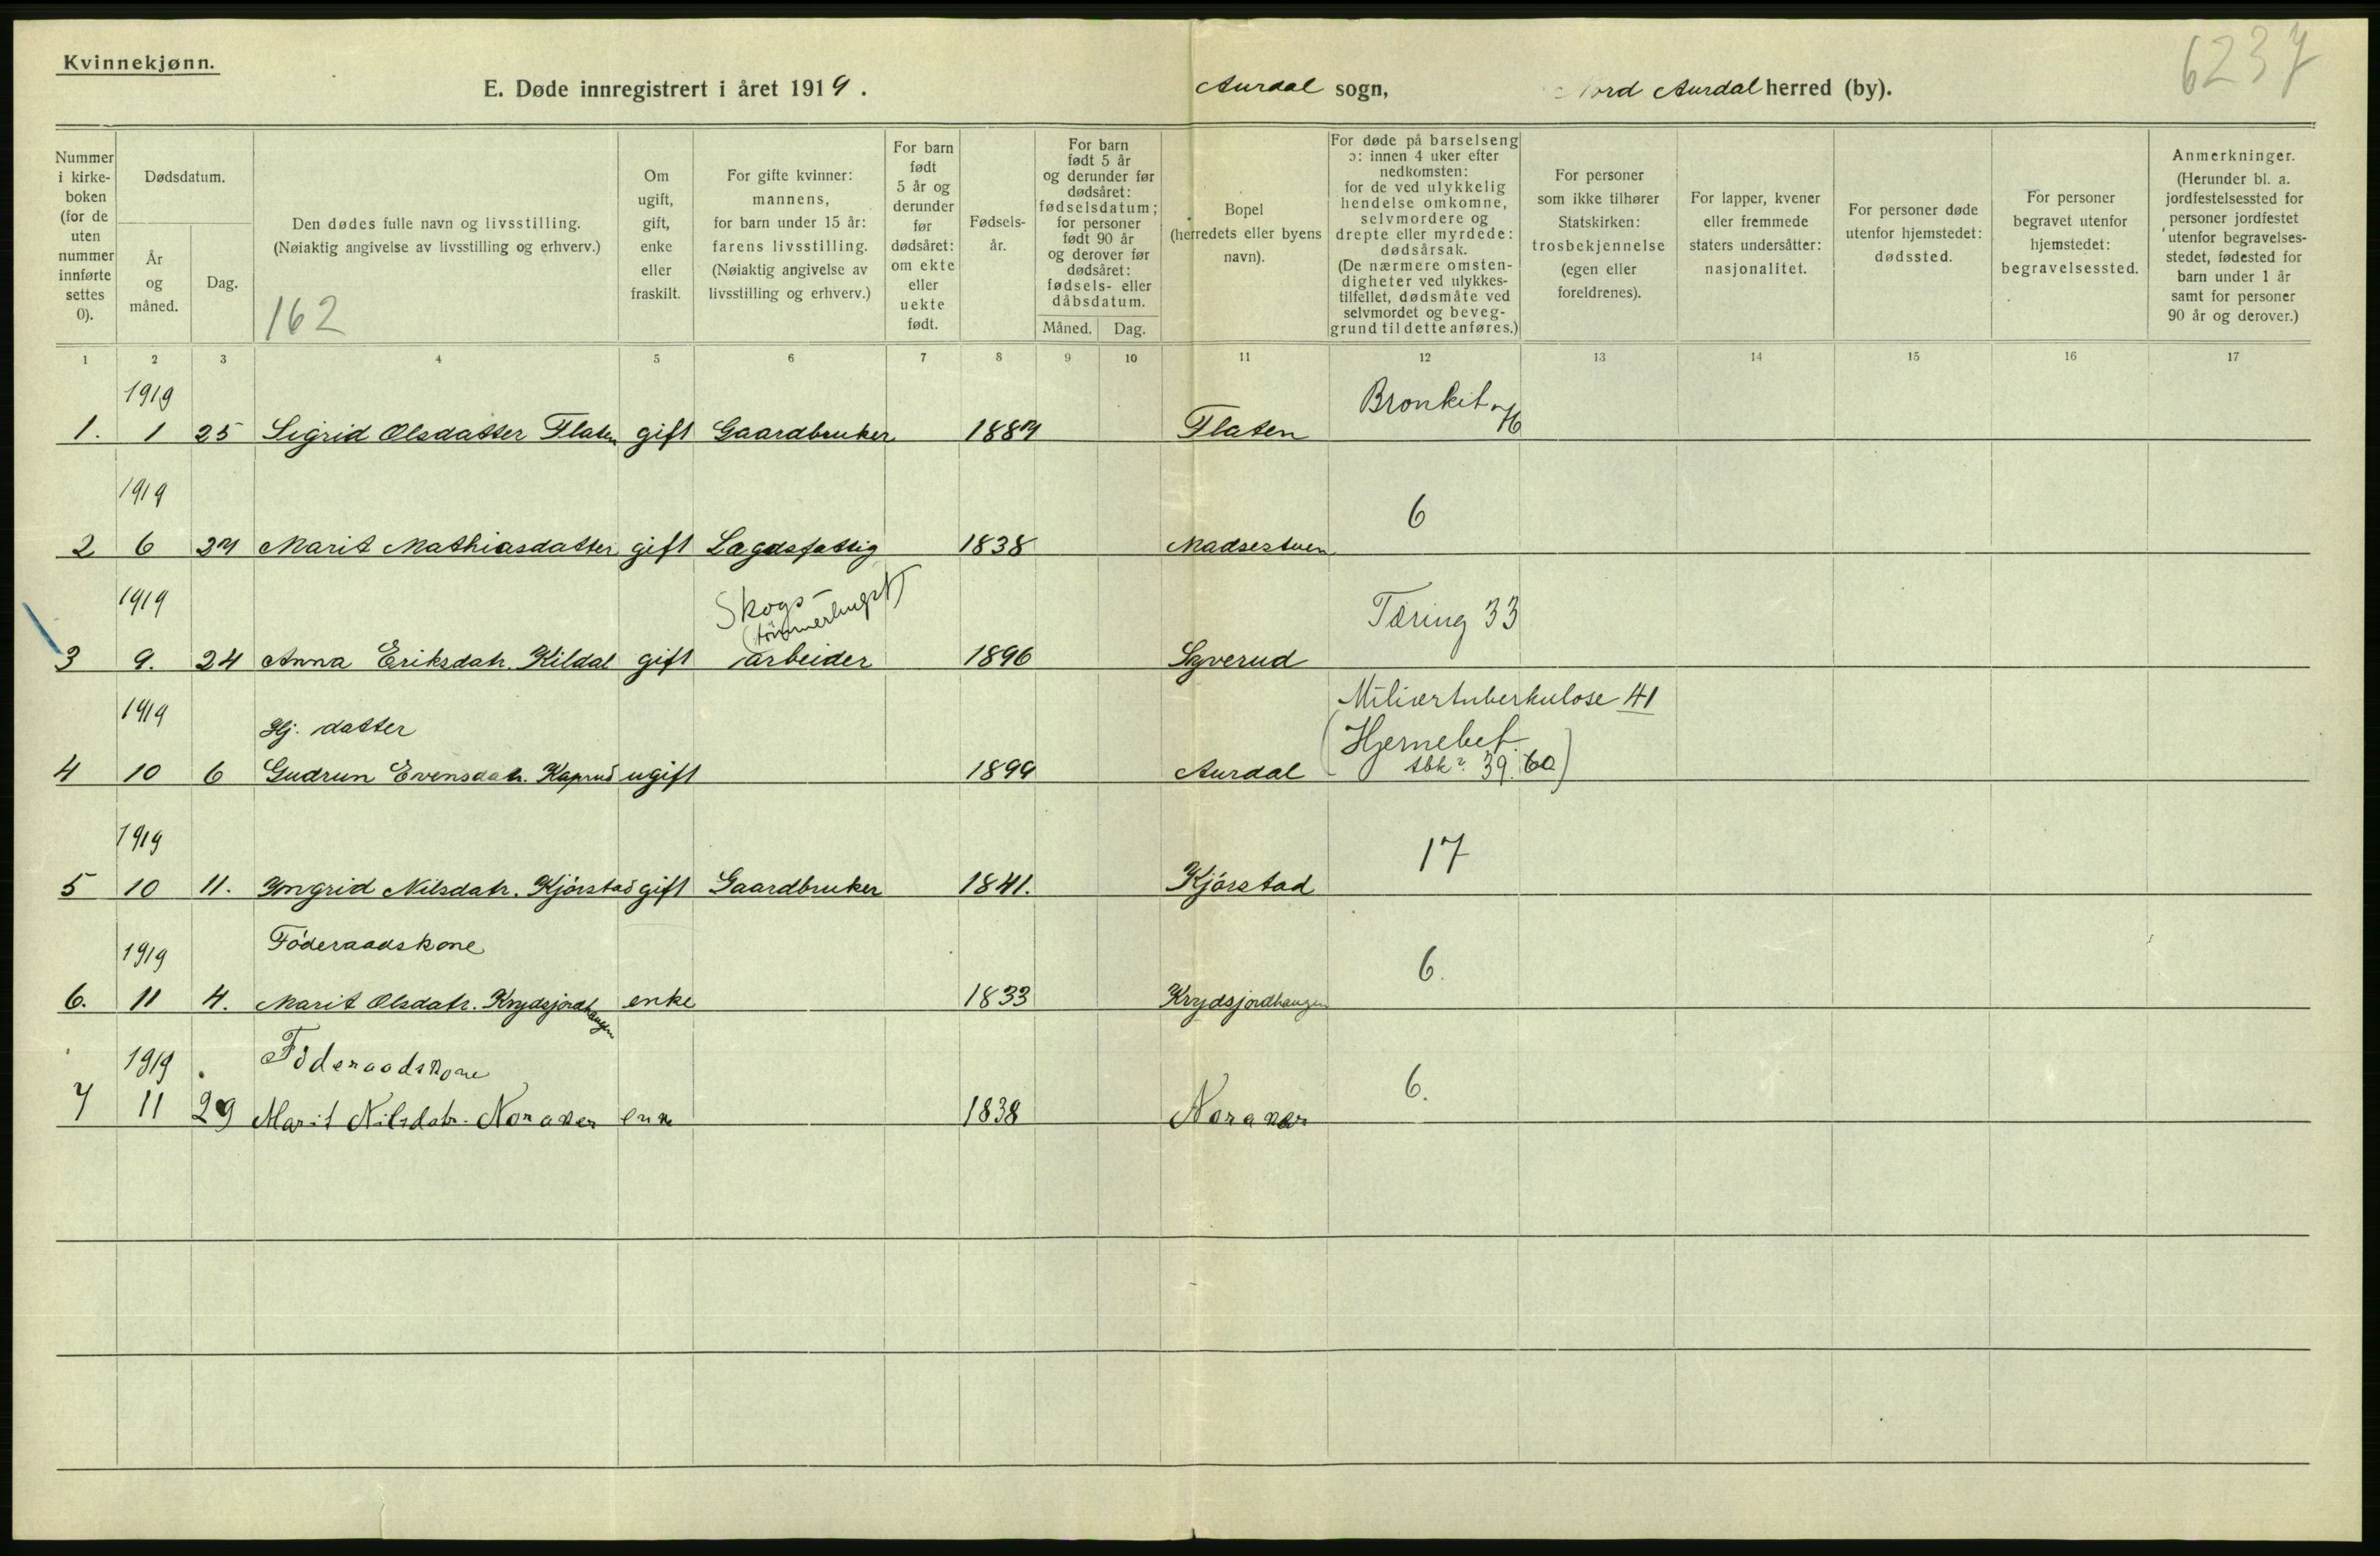 Kvinnekjønn.
6237
E. Døde innregistrert i året 1919.
Aurdal sogn,
Nord Aurdal herred (by).
Nummer i kirke-boken (for de uten nummer innførte settes 0).
Dødsdatum.
År og måned.
Dag.
Den dødes fulle navn og livsstilling.
(Nøiaktig angivelse av livsstilling og erhverv.)
162
Om ugift, gift, enke eller fraskilt.
For gifte kvinner: mannens, for barn under 15 år: farens livsstilling. (Nøiaktig angivelse av livsstilling og erhverv.)
For barn født 5 år og derunder før dødsåret: om ekte eller uekte født.
Fødsels-år.
For barn født 5 år og derunder før dødsåret: fødselsdatum; for personer født 90 år og derover før dødsåret: fødsels- eller dåbsdatum.
Måned. Dag.
Bopel (herredets eller byens navn).
For døde på barselseng ɔ: innen 4 uker efter nedkomsten: for de ved ulykkelig hendelse omkomne, selvmordere og drepte eller myrdede: dødsårsak. (De nærmere omsten-digheter ved ulykkes-tilfellet, dødsmåte ved selvmordet og beveg-grund til dette anføres.)
For personer som ikke tilhører Statskirken: trosbekjennelse (egen eller foreldrenes).
For lapper, kvener eller fremmede staters undersåtter: nasjonalitet.
For personer døde utenfor hjemstedet: dødssted.
For personer begravet utenfor hjemstedet: begravelsessted.
Anmerkninger. (Herunder bl. a. jordfestelsessted for personer jordfestet utenfor begravelses-stedet, fødested for barn under 1 år samt for personer 90 år og derover.)
1 2 3 4 5 6 7 8 9 10 11 12 13 14 15 16 17
1919 Bronkit
1. 1 25 Sigrid Olsdatter Flaten gift Gaardbruker 1887 Flaten
1919 6
2 6 27 Marit Mathiasdatter gift Lægdsfattig 1838 Madsestuen
1919 Skogs- Tæring 33
(tömmerhugst)
3 9. 24 Anna Eriksdatr. Kildal gift arbeider 1896 Syverud
1919 Miliærtuberkulose 41
Hj. datter (Hjernebet.
4 10 6 Gudrun Evensdatr. Kaprud ugift 1899 Aurdal tbk? 39. 60)
1919 17
5 10 11. Yngrid Nilsdatr. Kjörstad gift Gaardbruker 1841. Kjörstad
1919 Föderaadskone 6.
6. 11 4. Marit Olsdatr. Krydsjordhaugen enke 1833 Krydsjordhaugen
1919 Föderaadskone 6.
7 11 29 Marit Nilsdatr. Noraker enke 1838 Noraker